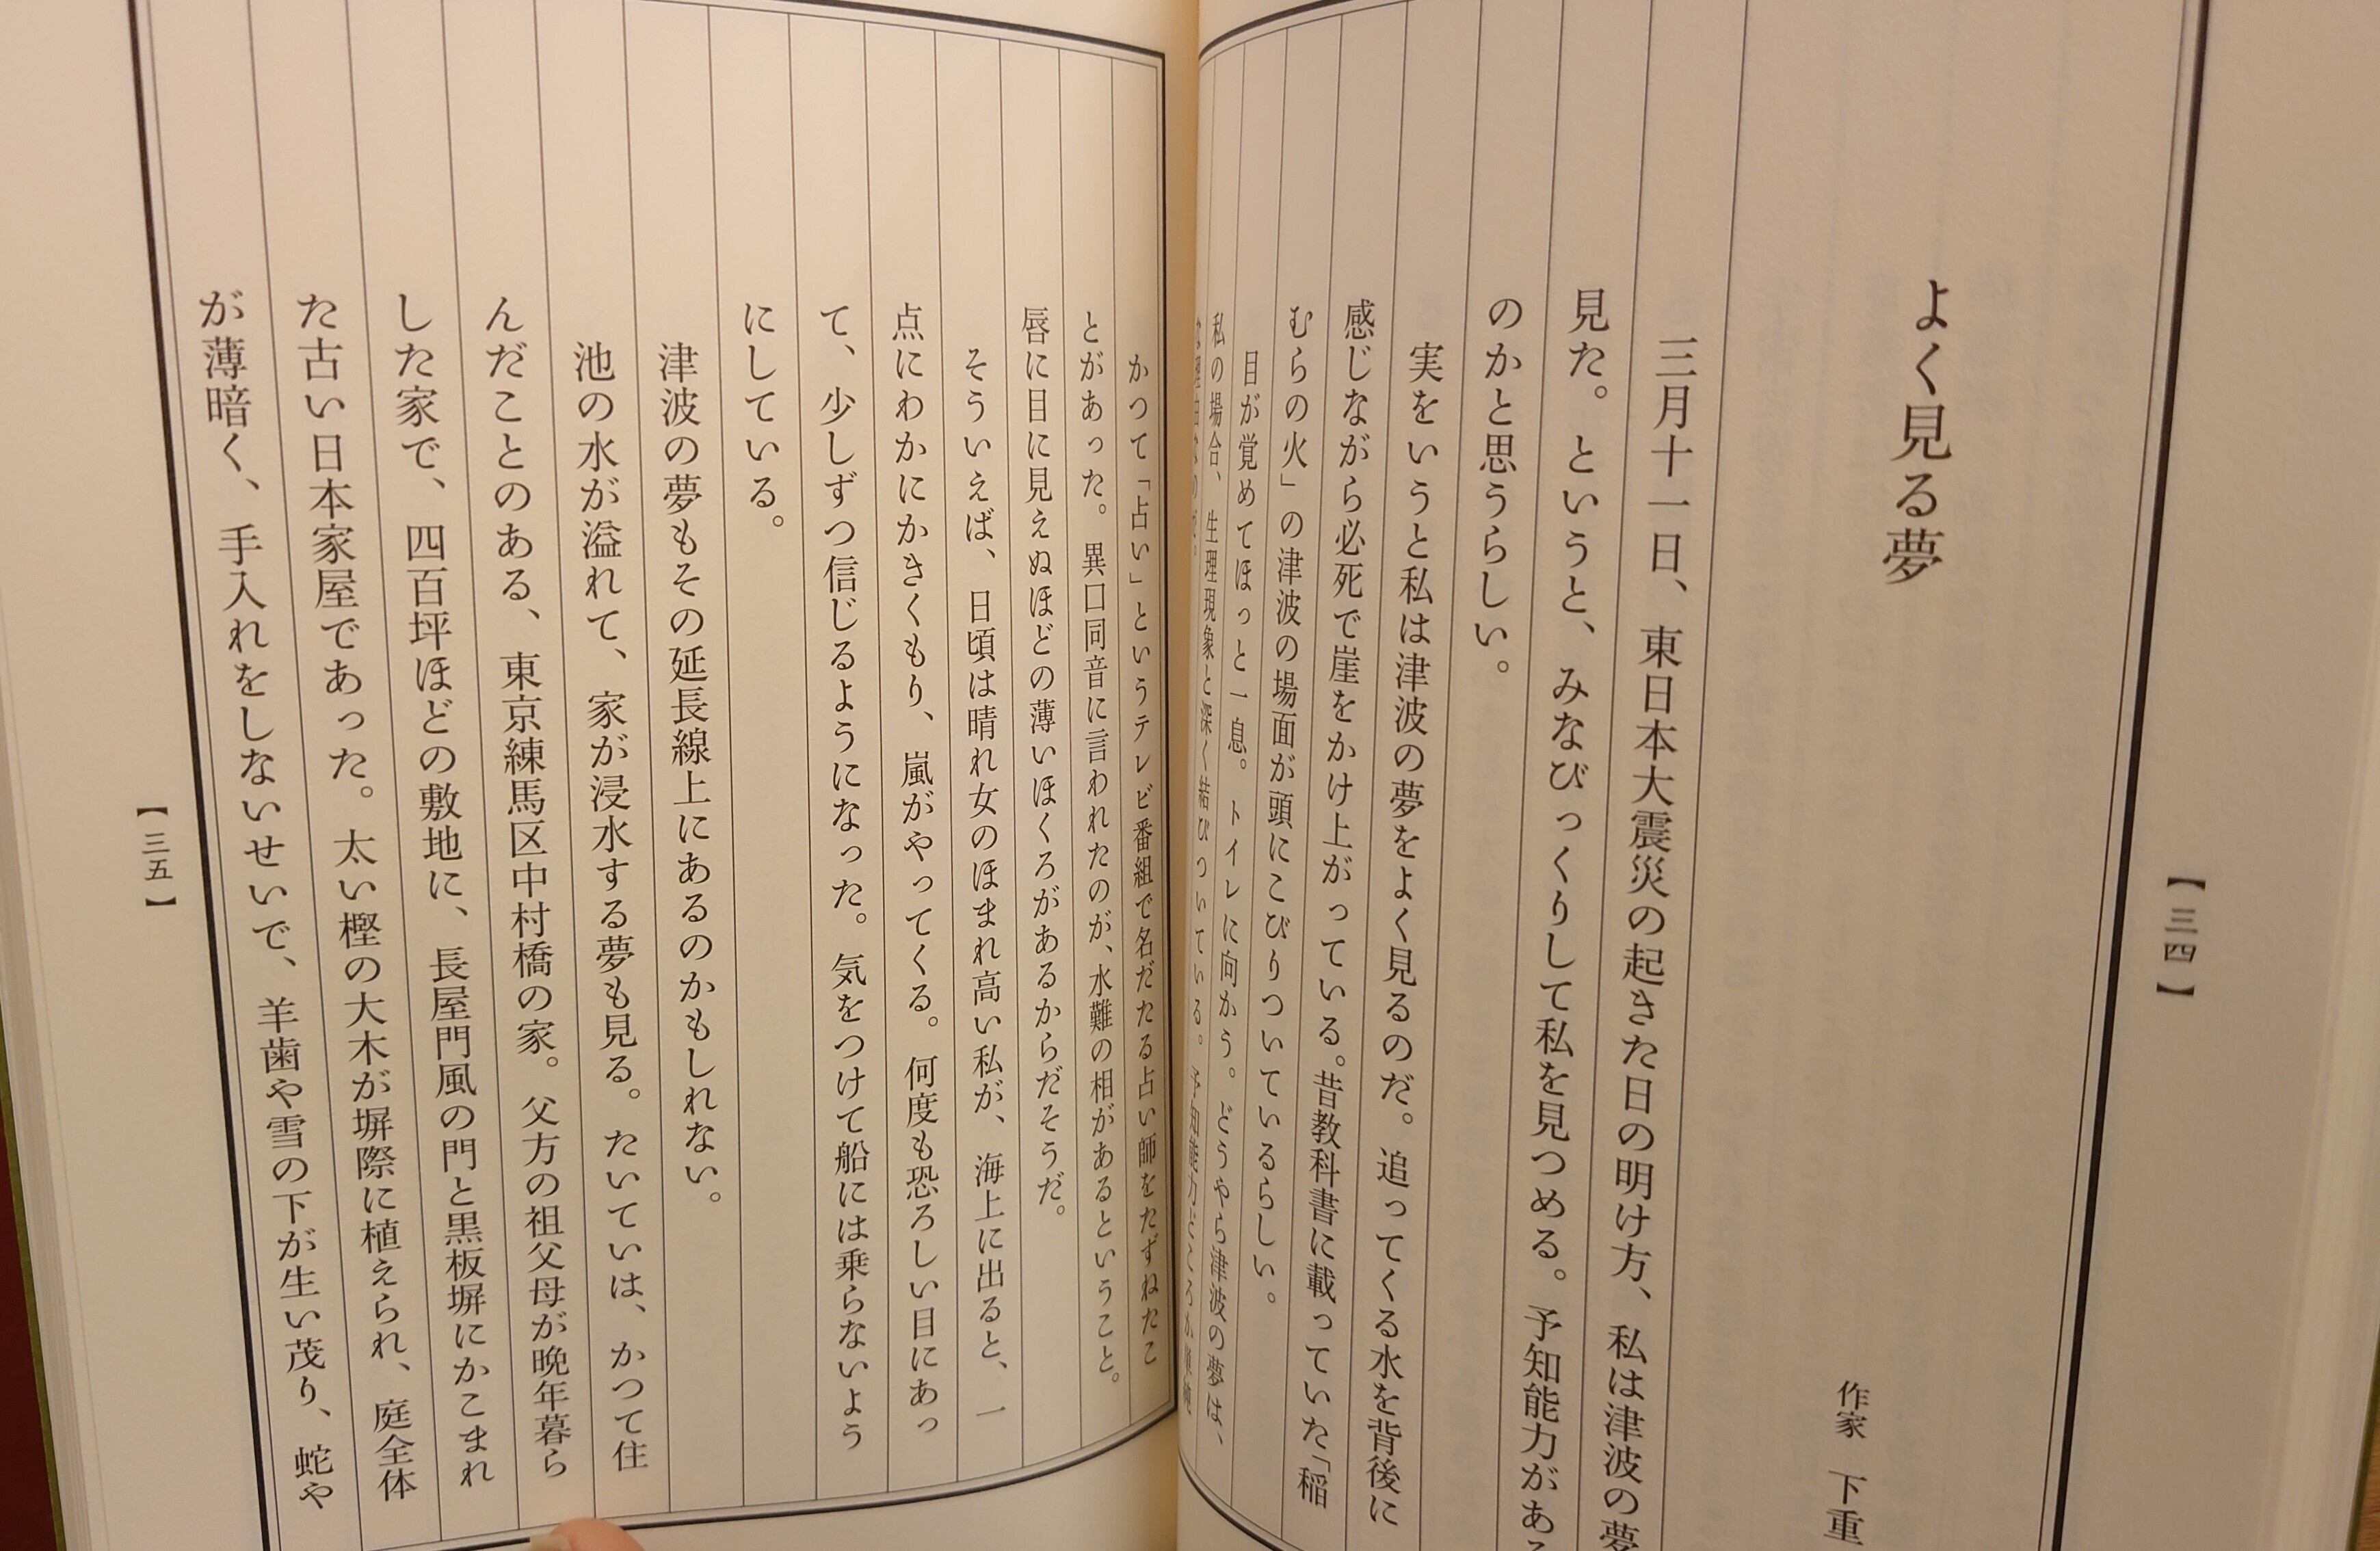 よく見る夢
作家　下重
三月十一日、東日本大震災の起きた日の明け方、私は津波の夢
見た。というと、みなびっくりして私を見つめる。予知能力がある
のかと思うらしい。
実をいうと私は津波の夢をよく見るのだ。追ってくる水を背後に
感じながら必死で崖をかけ上がっている。昔教科書に載っていた「稲
むらの火」の津波の場面が頭にこびりついているらしい。
目が覚めてほっと一息。トイレに向かう。どうやら津波の夢は、
私の場合、生理現象と深く結びついている。予知能力どころか
【三四】
かつて「占い」というテレビ番組で名だたる占い師をたずねたこ
とがあった。異口同音に言われたのが、水難の相があるということ。
唇に目に見えぬほどの薄いほくろがあるからだそうだ。
そういえば、日頃は晴れ女のほまれ高い私が、海上に出ると、一
点にわかにかきくもり、嵐がやってくる。何度も恐ろしい目にあっ
て、少しずつ信じるようになった。気をつけて船には乗らないよう
にしている。
津波の夢もその延長線上にあるのかもしれない。
池の水が溢れて、家が浸水する夢も見る。たいていは、かつて住
んだことのある、東京練馬区中村橋の家。父方の祖父母が晩年暮ら
した家で、四百坪ほどの敷地に、長屋門風の門と黒板塀にかこまれ
た古い日本家屋であった。太い樫の大木が塀際に植えられ、庭全体
が薄暗く、手入れをしないせいで、羊歯や雪の下が生い茂り、蛇や
【三五】